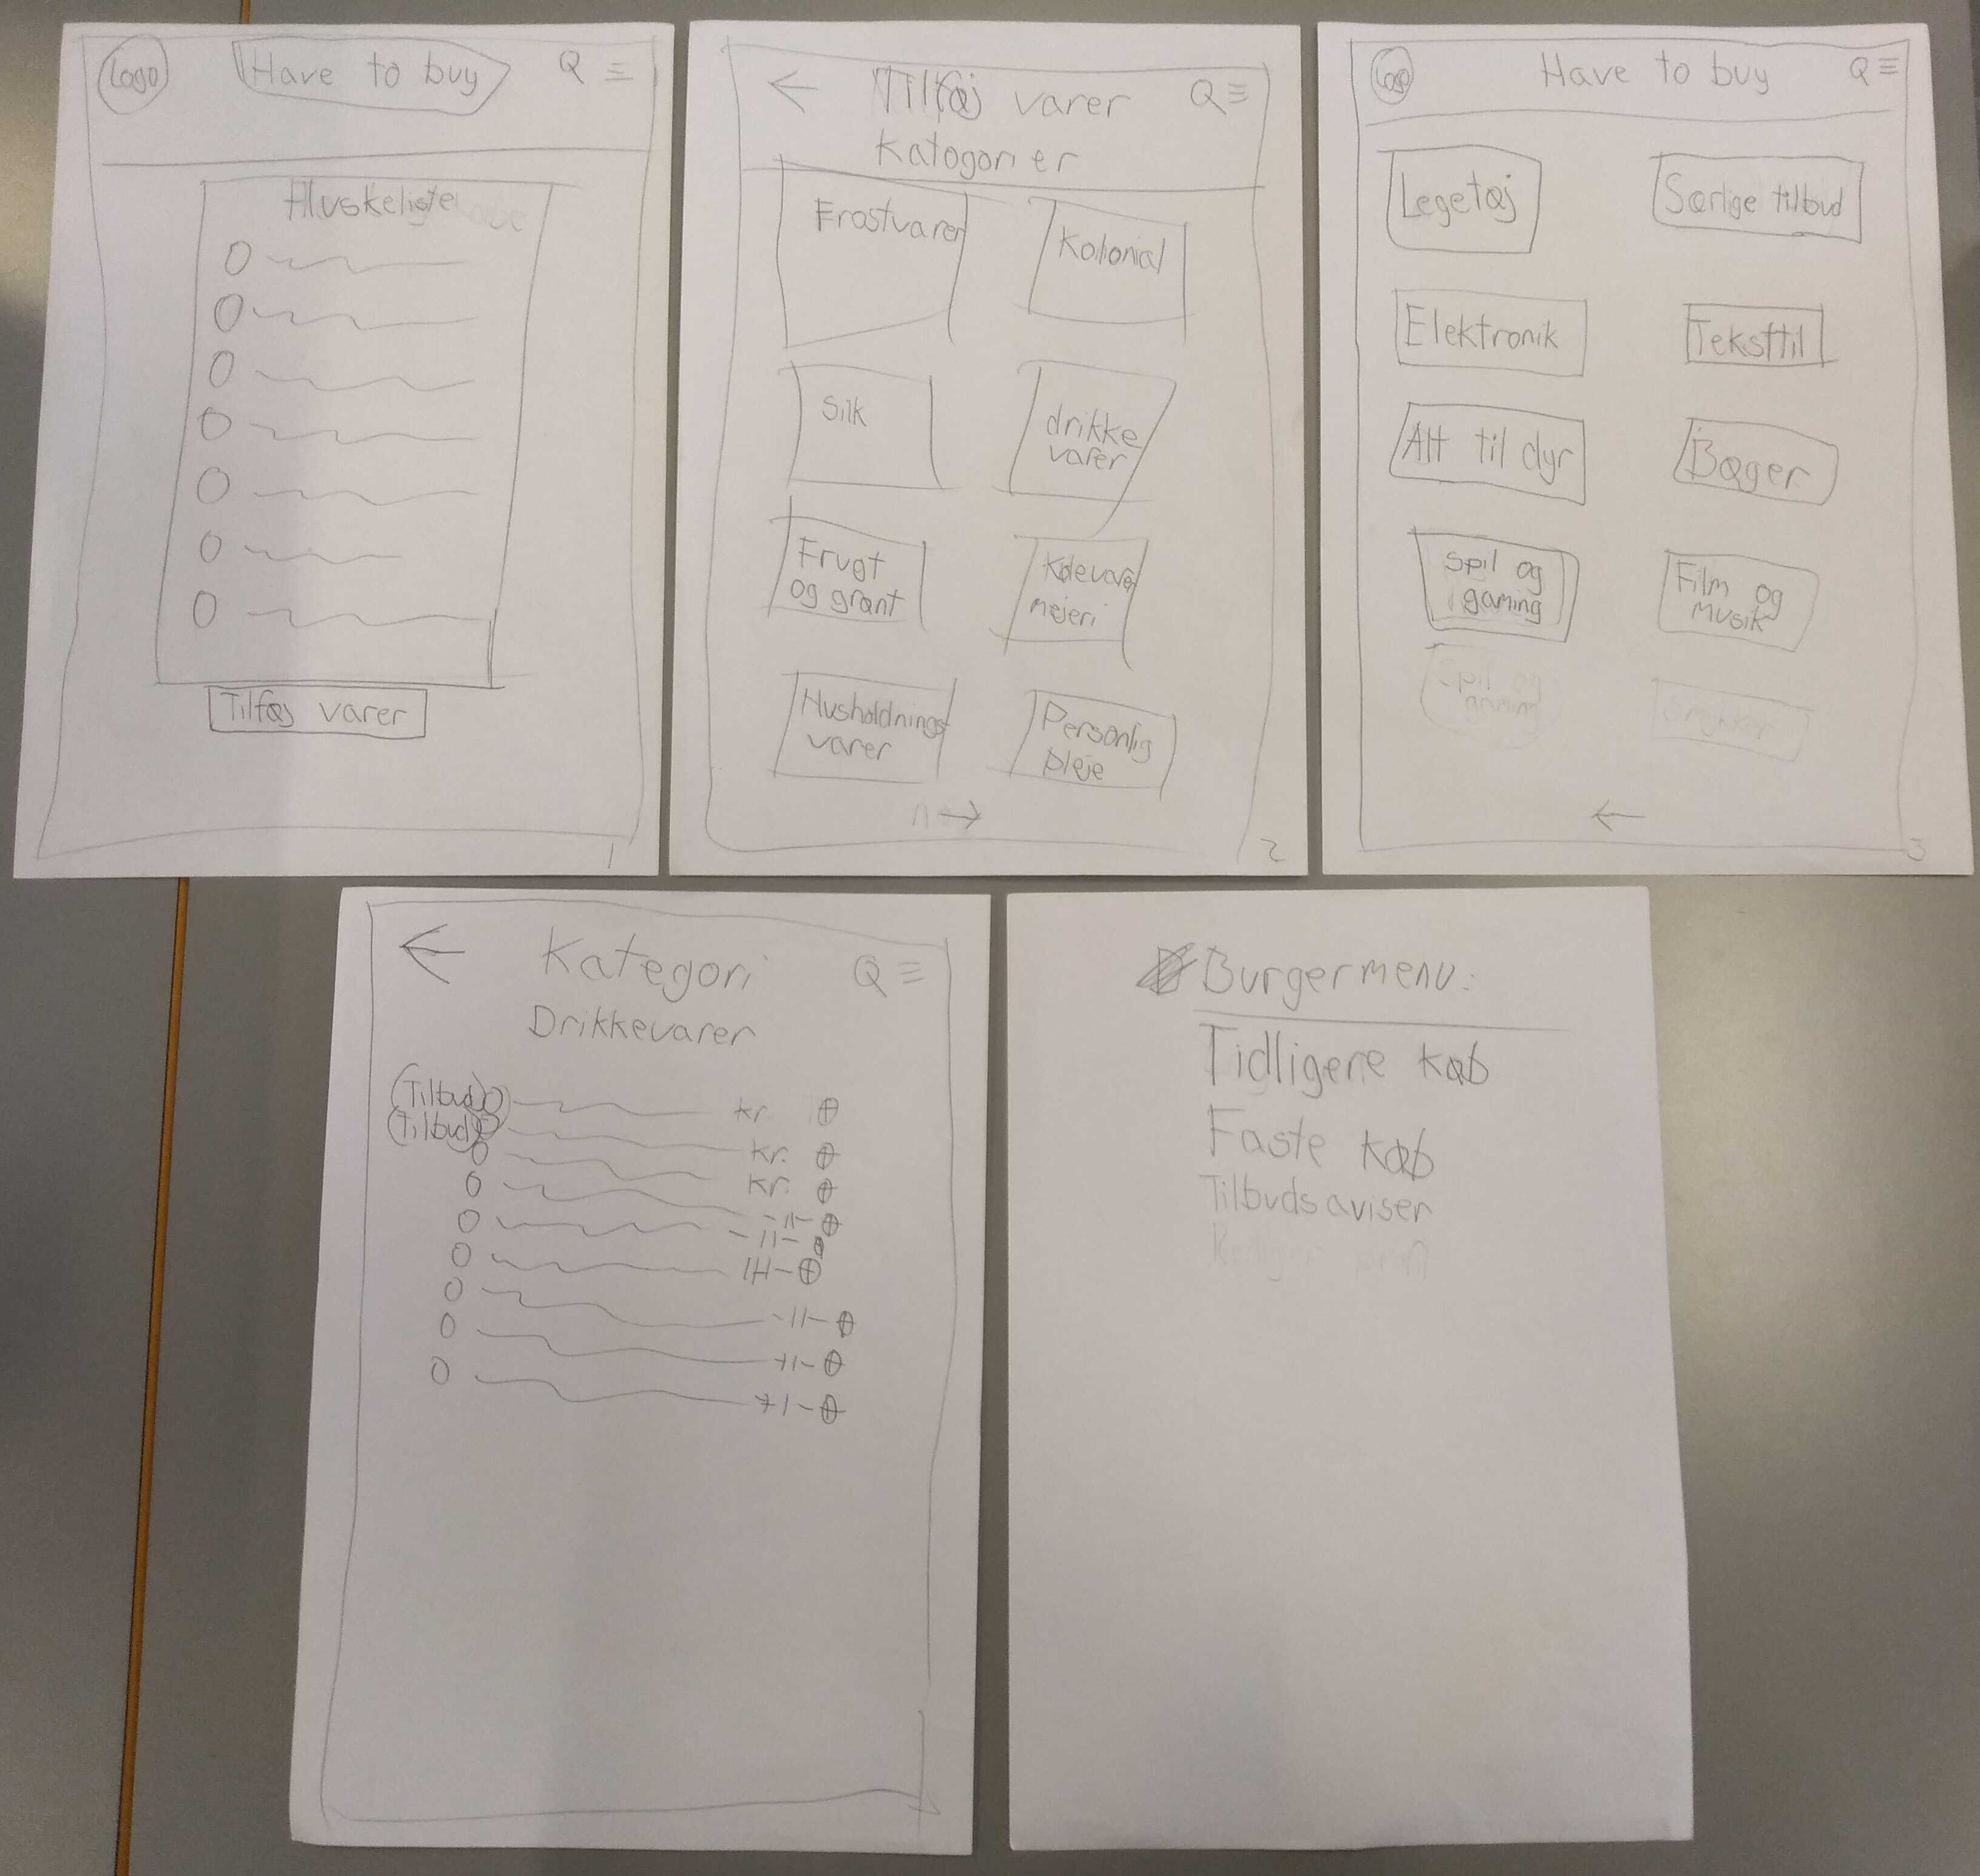 Logo Have to buy
Huskeliste
Tilføj varer
1
Tilføj varer
Katogorier
Frostvarer
Kolonial
Silk
drikke
varer
Frugt
og grønt
Kølevarer
mejeri
Husholdnings
varer
Personlig
pleje
2
Logo Have to buy
Legetøj
Særlige tilbud
Elektronik
Teksttil
Alt til dyr
Bøger
Spil og
gaming
Film og
Musik
Spil og
gaming
3
Kategori
Drikkevarer
(Tilbud) kr.
(Tilbud) kr.
kr.
-11-
-11-
-11-
-11-
-11-
Burgermenu:
Tidligere køb
Faste køb
Tilbudsaviser